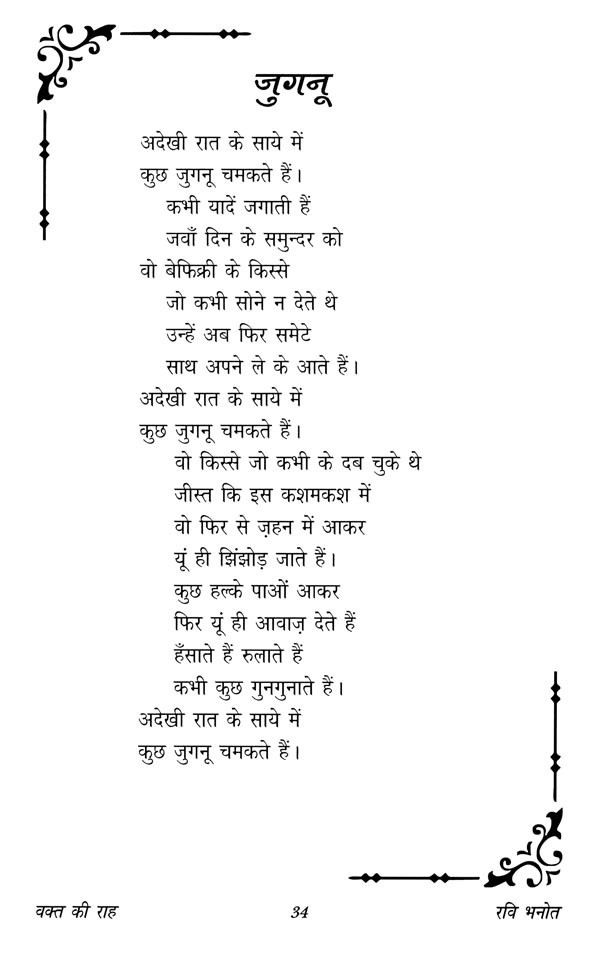 जुगनू
अदेखी रात के साये में
कुछ जुगनू चमकते हैं।
कभी यादें जगाती हैं
जवाँ दिन के समुन्दर को
वो बेफिक्री के किस्से
जो कभी सोने न देते थे
उन्हें अब फिर समेटे
साथ अपने ले के आते हैं।
अदेखी रात के साये में
कुछ जुगनू चमकते हैं।
वो किस्से जो कभी के दब चुके थे
जीस्त कि इस कशमकश में
वो फिर से ज़हन में आकर
यूं ही झिंझोड़ जाते हैं।
कुछ हल्के पाओं आकर
फिर यूं ही आवाज़ देते हैं
हँसाते हैं रुलाते हैं
कभी कुछ गुनगुनाते हैं।
अदेखी रात के साये में
कुछ जुगनू चमकते हैं।
वक्त की राह 34 रवि भनोत